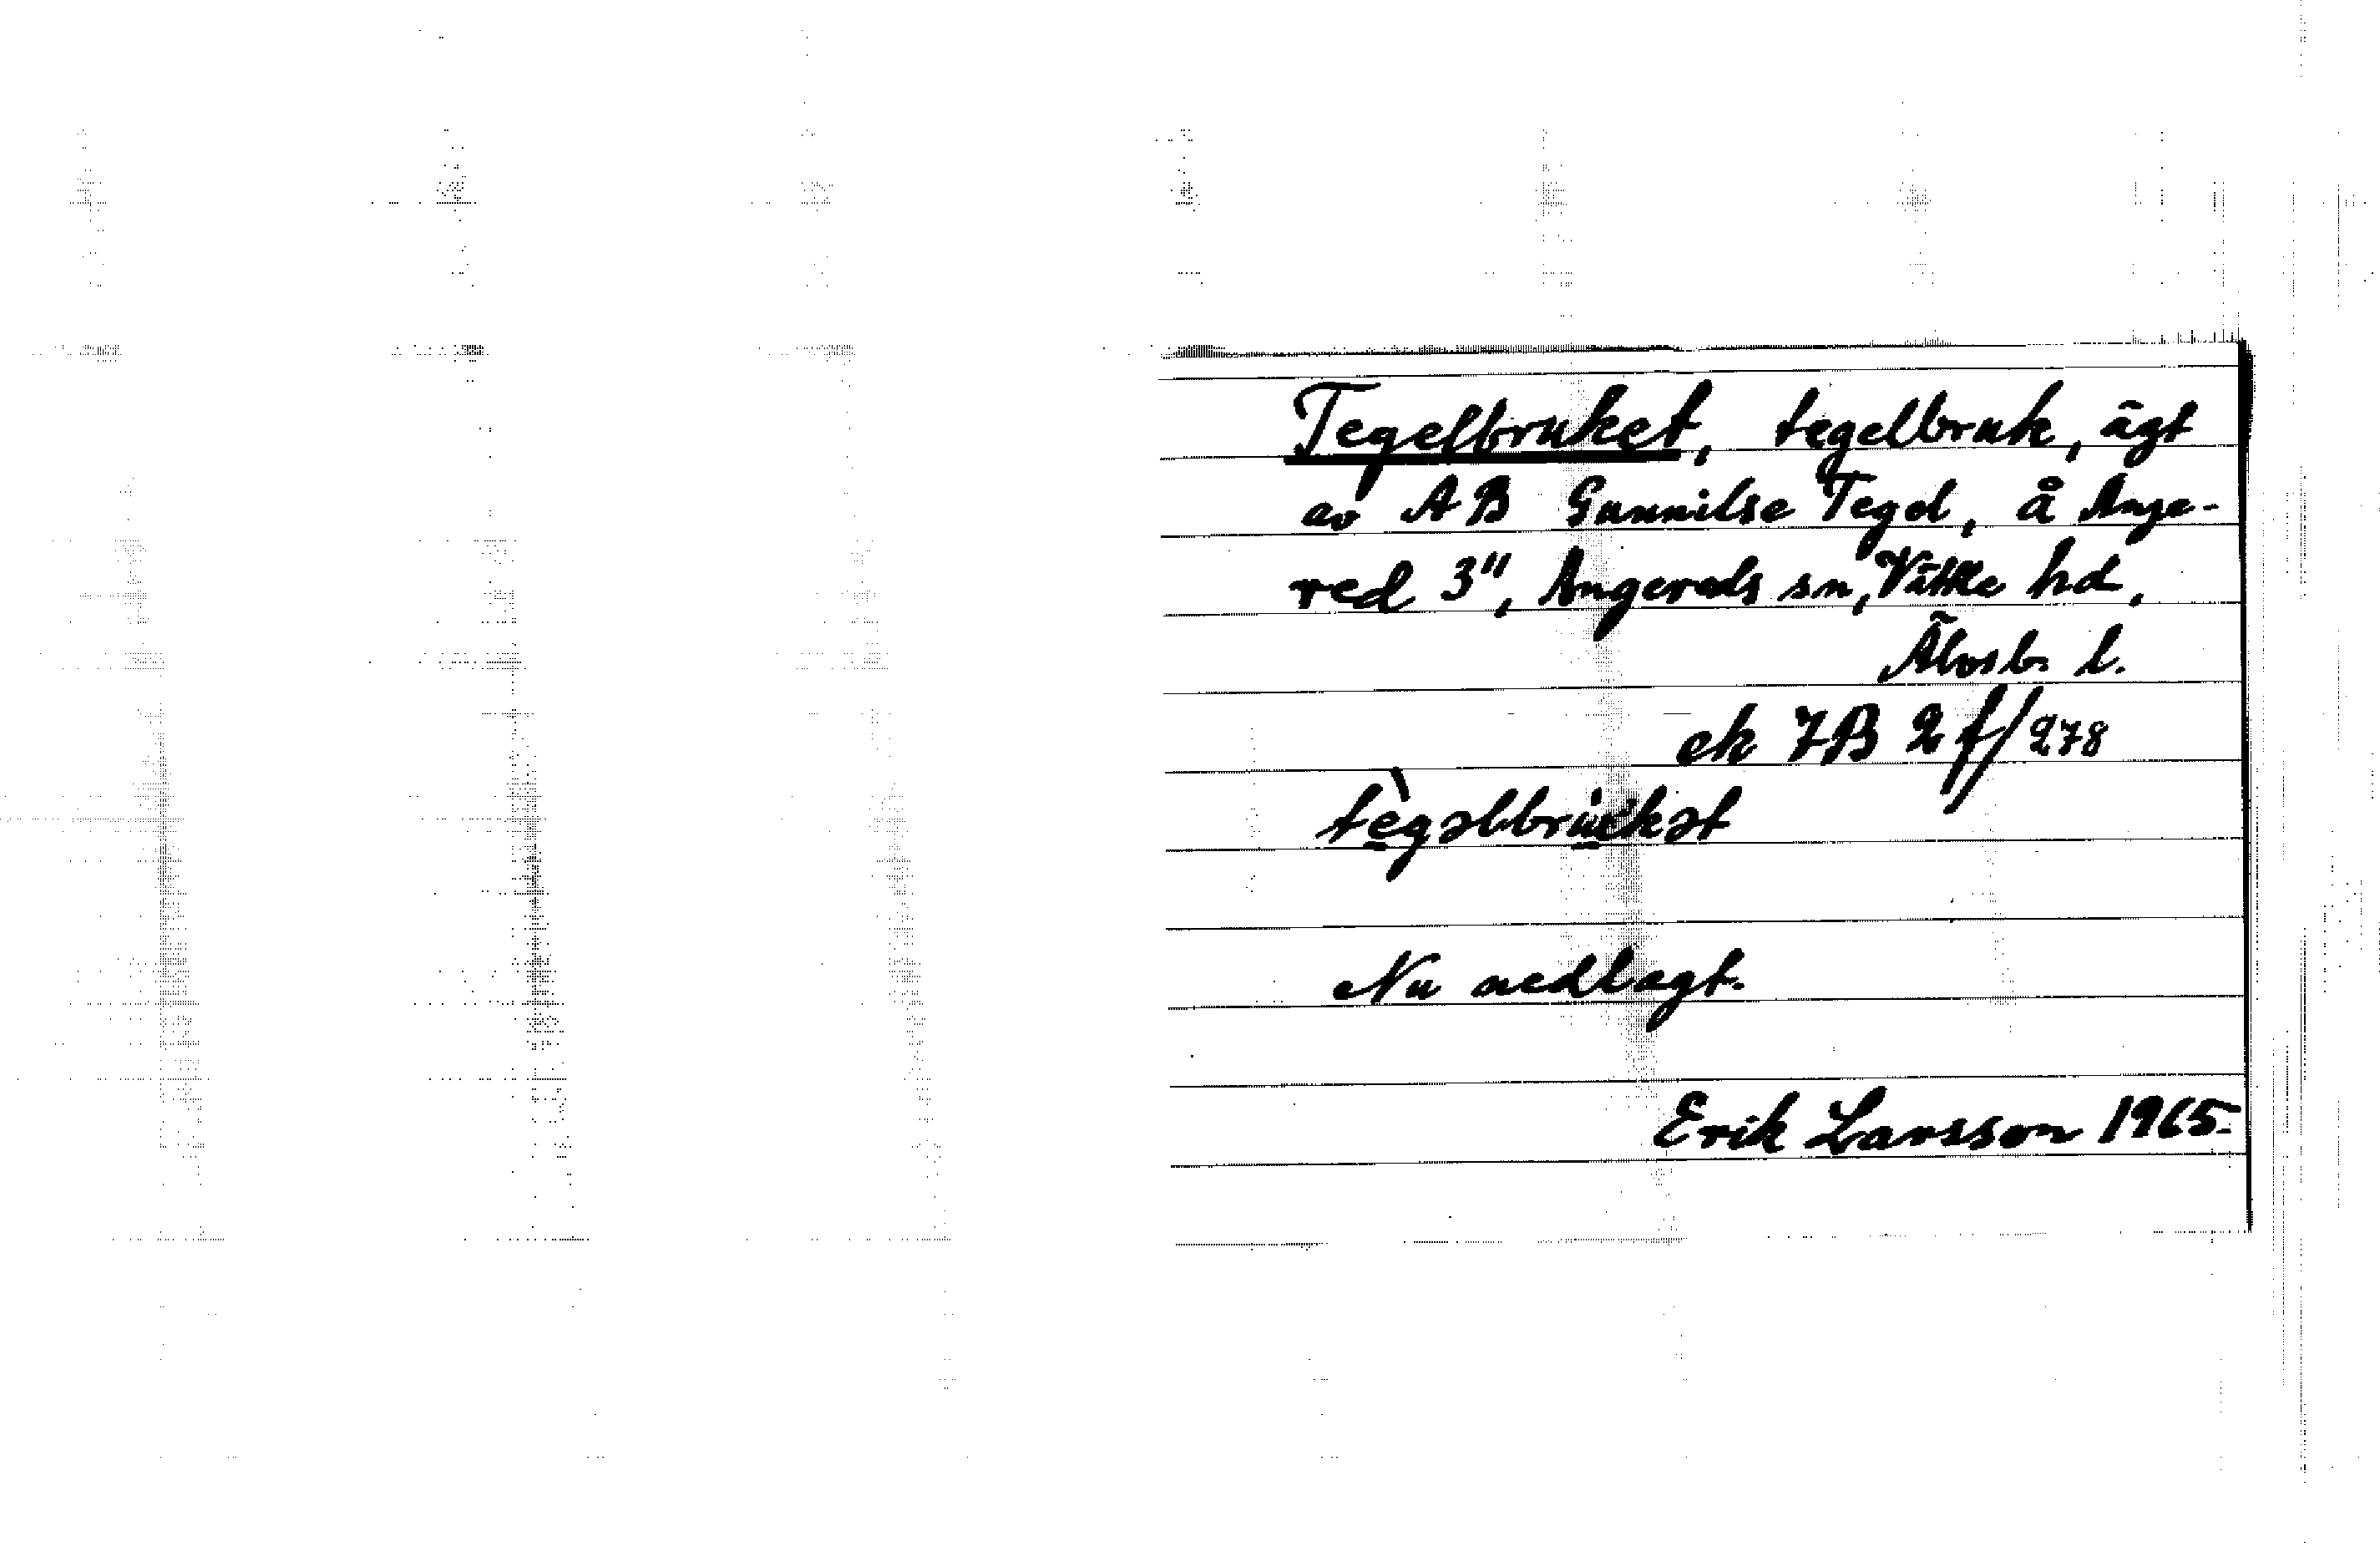 Tegelbruket, tegelbruk, ägt
av AB Gunnilse Tegel, å Ange-
red 3", Angereds sn, Vättle hd,
Älvsb. l.
ek 7B 2 f/278
tègəlbrùkət
Nu nedlagt.
Erik Larsson 1965.